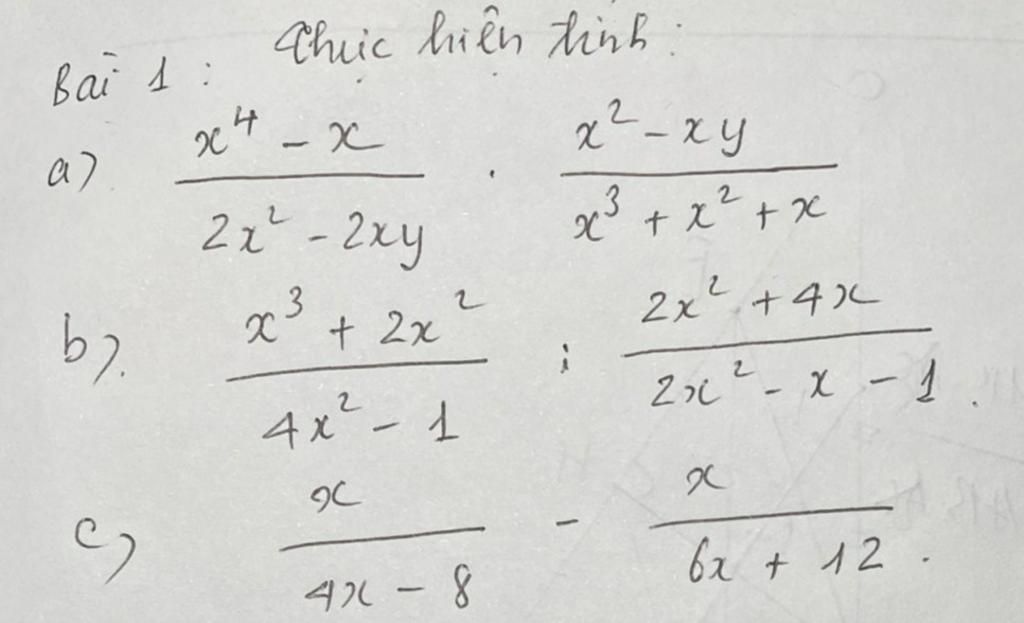 Bài 1 : Thực hiện tính :
a) \frac{x^4 - x}{2x^2 - 2xy} . \frac{x^2 - xy}{x^3 + x^2 + x}
b) \frac{x^3 + 2x^2}{4x^2 - 1} : \frac{2x^2 + 4x}{2x^2 - x - 1} .
c) \frac{x}{4x - 8} - \frac{x}{6x + 12} .